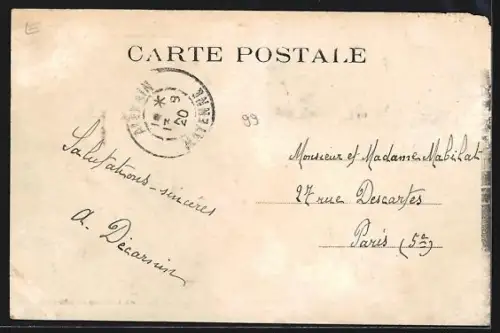 CARTE POSTALE
MAYENNE
20
99
Salutations sincères
A. Décarsin
Monsieur et Madame Mabilat
27 rue Descartes
Paris (5e)